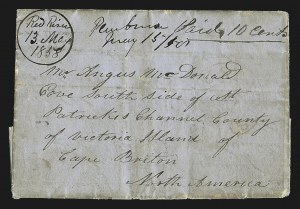 Red River
13. Mar
1858
Pembina Paid 10 Cents
May 15/58
Mr Angus McDonald
Cove South side of St
Patricks Channel County
of Victoria Island of
Cape Breton
North America